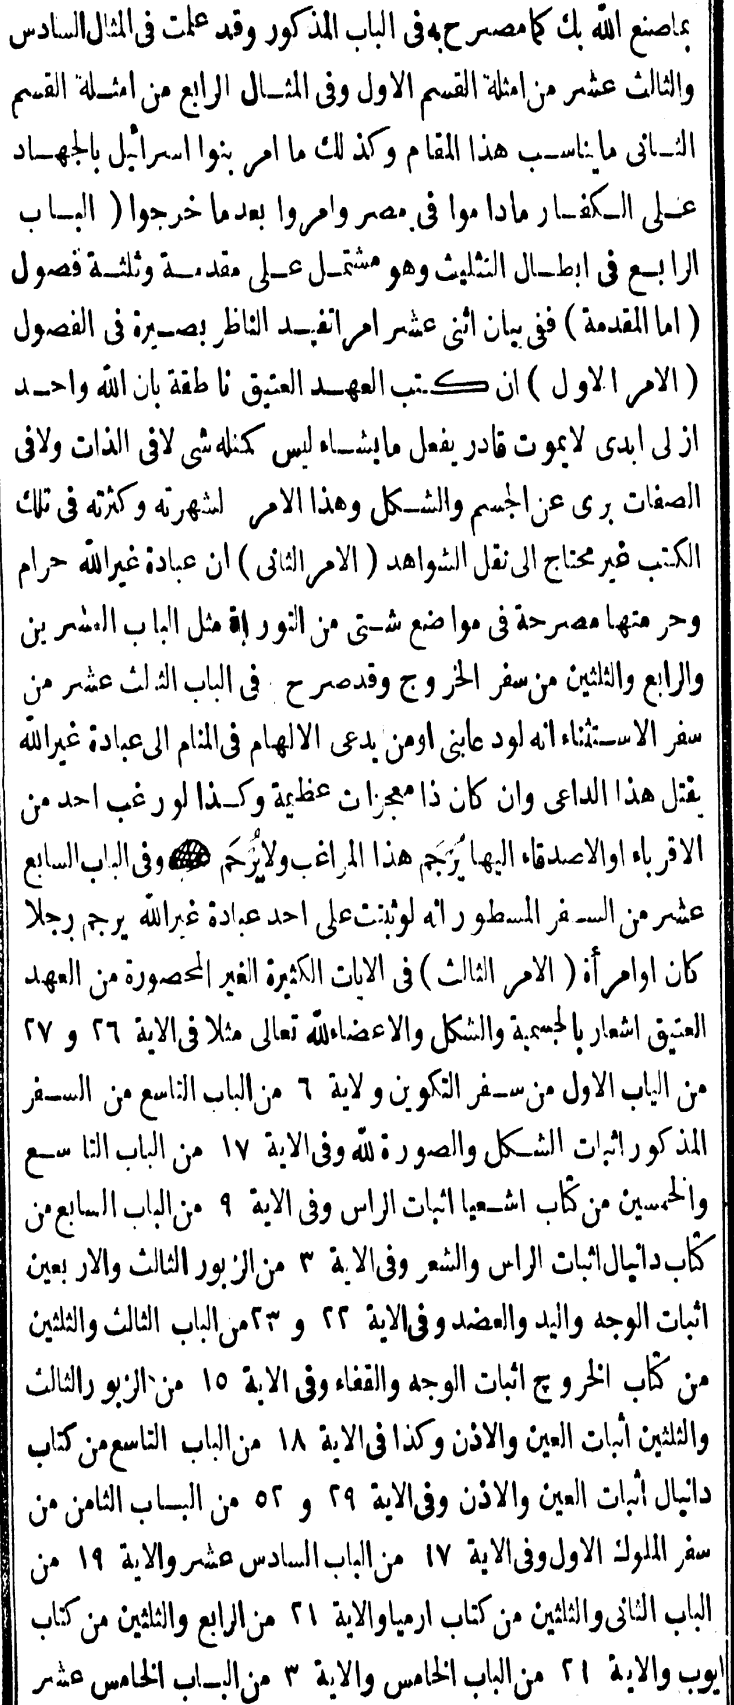 بماصنع الله بك كما مصرح به فى الباب المذكور وقد علمت فى المثال السادس
والثالث عشر من امثلة القسم الاول وفى المثال الرابع من امثلة القسم
الثانى مايناسب هذا المقام وكذلك ما امر بنوا اسرائيل بالجهاد
على الكفار مادا موا فى مصر وامروا بعد ما خرجوا ( الباب
الرابع فى ابطال التثليث وهو مشتمل على مقدمة وثلثة فصول
( اما المقدمة ) ففى بيان اثنى عشر امرا تفيد الناظر بصيرة فى الفصول
( الامر الاول ) ان كتب العهد العتيق ناطقة بان الله واحد
ازلى ابدى لايموت قادر يفعل مايشاء ليس كمثله شى لافى الذات ولافى
الصفات برى عن الجسم والشكل وهذا الامر لشهرته وكثرته فى تلك
الكتب غير محتاج الى نقل الشواهد ( الامر الثانى ) ان عبادة غير الله حرام
وحرمتها مصرحة فى مواضع شتى من التوراة مثل الباب العشرين
والرابع والثلثين من سفر الخروج وقد صرح فى الباب الثالث عشر من
سفر الاستثناء انه لو دعا نبى او من يدعى الالهام فى المنام الى عبادة غير الله
يقتل هذا الداعى وان كان ذا معجزات عظيمة وكذا لو رغب احد من
الاقرباء او الاصدقاء اليها يُرْجَم هذا المراغب ولا يُرْحَم وفى الباب السابع
عشر من السفر المسطور انه لو ثبتت على احد عبادة غير الله يرجم رجلا
كان او امرأة ( الامر الثالث ) فى الايات الكثيرة الغير المحصورة من العهد
العتيق اشعار بالجسمية والشكل والاعضاء لله تعالى مثلا فى الاية ٢٦ و ٢٧
من الباب الاول من سفر التكوين ولاية ٦ من الباب التاسع من السفر
المذكور اثبات الشكل والصورة لله وفى الاية ١٧ من الباب التاسع
والخمسين من كتاب اشعيا اثبات الراس وفى الاية ٩ من الباب السابع من
كتاب دانيال اثبات الراس والشعر وفى الاية ٣ من الزبور الثالث والاربعين
اثبات الوجه واليد والعضد وفى الاية ٢٢ و ٢٣ من الباب الثالث والثلثين
من كتاب الخروج اثبات الوجه والقفاء وفى الاية ١٥ من الزبور الثالث
والثلثين أثبات العين والاذن وكذا فى الاية ١٨ من الباب التاسع من كتاب
دانيال أثبات العين والاذن وفى الاية ٢٩ و ٥٢ من الباب الثامن من
سفر الملوك الاول وفى الاية ١٧ من الباب السادس عشر والاية ١٩ من
الباب الثانى والثلثين من كتاب ارميا والاية ٢١ من الرابع والثلثين من كتاب
ايوب والاية ٢١ من الباب الخامس والاية ٣ من الباب الخامس عشر